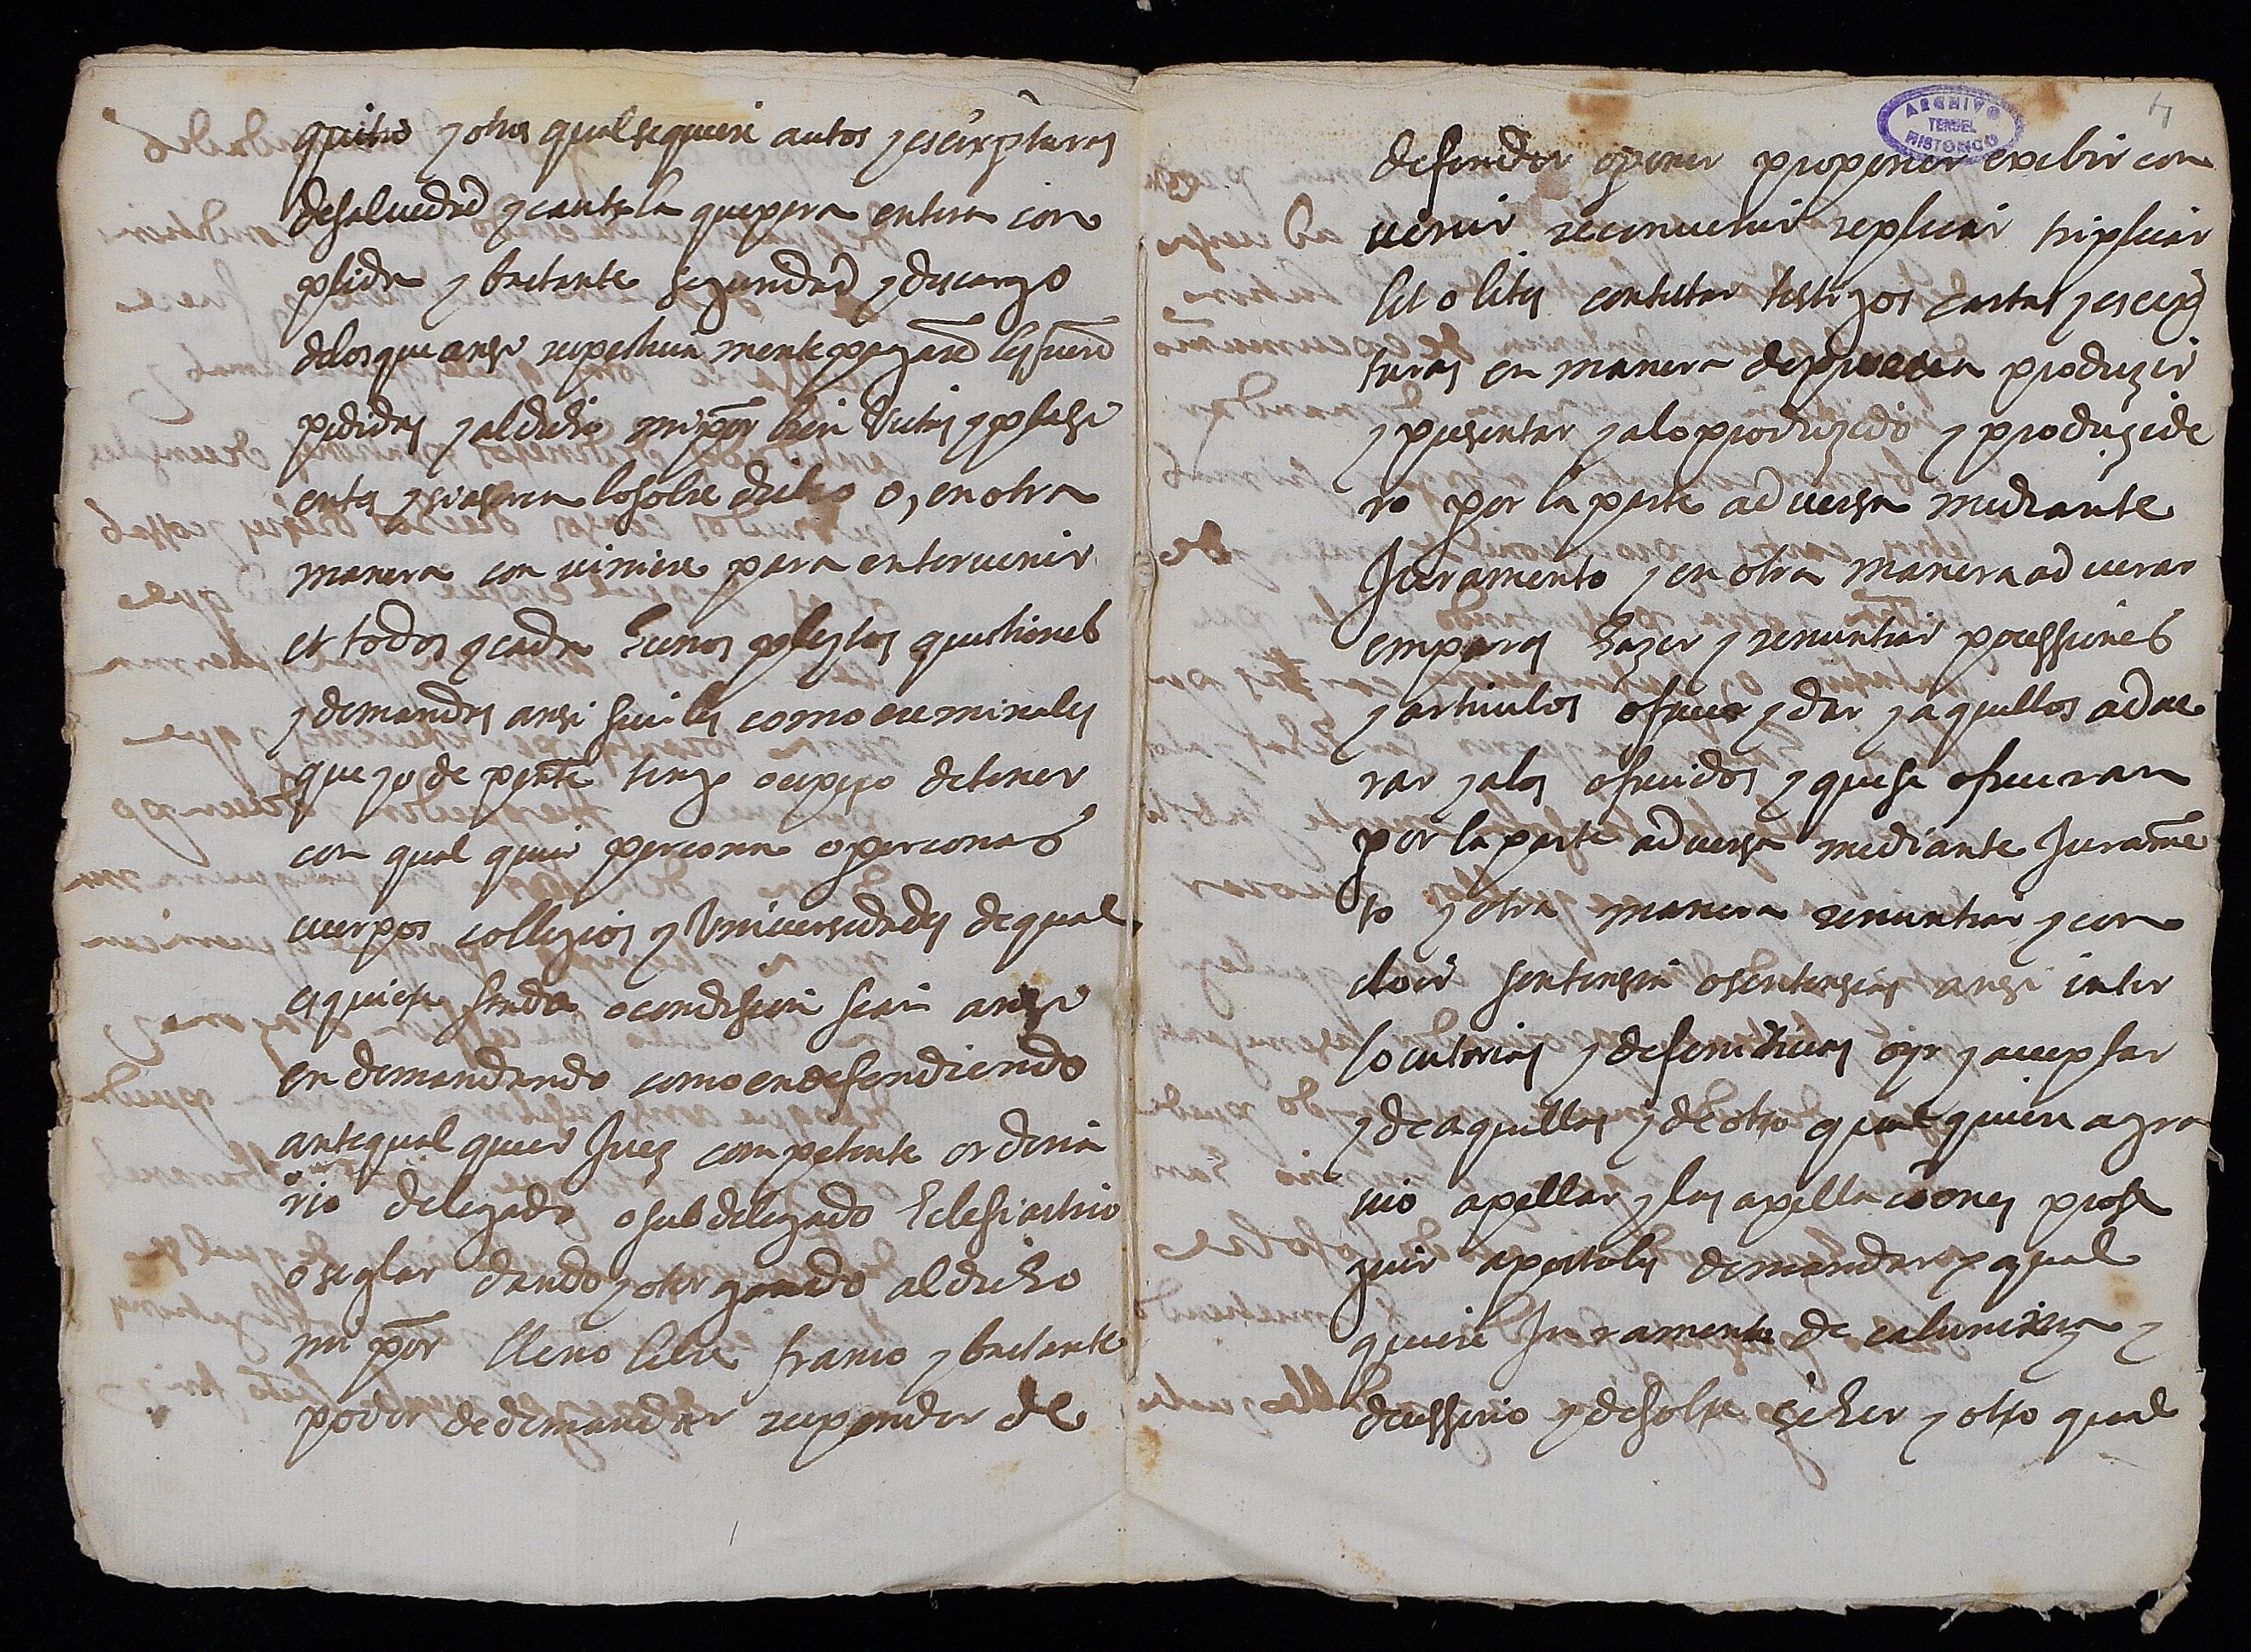 quitio y otros qualsequiere autos y escripturas
de saluedad y cautela que pera entera con
plida y bastante seguridad y descargo
de los que ansi respectiua mente pagarē les fuerē
pedidas y al dicho mi pōr bien vistas y plasi
entes y si aserca lo sobre dicho o, en otra
manera con viniere para enteruenir
et todos y cada hunos pleytos questiones
y demandas ansi siuiles como creminales
que yo de pnte tengo o espero de tener
con qual quier percona o perconas
cuerpos collegios y Vniuersidades de qual
es quiere stado o condision sean ansi
en demandando como en defendiendo
ante qual quier Juez competente ordina
rio delegado o sub delegado Eclesiastico
o seglar dando y otorgando al dicho
mi pōr lleno libre franco y bastante
poder de demandar responder de
ARCHIVO
TERUEL
HISTORICO
4
defender oponer proponer exebir con
uenir reconuenir replicar triplicar
lit o lites contestar testigos cartas y escrip
turas en manera de prueua produzir
y presentar y a lo produzido y produzide
ro por la parte aduersa mediante
Juramento y en otra manera aduerar
emparas hazer y renuntiar possessiones
y articulos ofrecer y dar y aquellos adue
rar y a los ofrecidos y que se ofreceran
por la parte aduersa mediante Jurame
to y otra manera renuntiar y con
cloir sentensia o sentensias ansi inter
locutorias y defenitiuas oyr y acceptar
y de aquellas y de otro qual quiere agra
uio apellar y las apellaciones prose
guir apostoles demandar y qual
quiere Juramento de calumnia y
decissorio y de sobre seher y otro qual